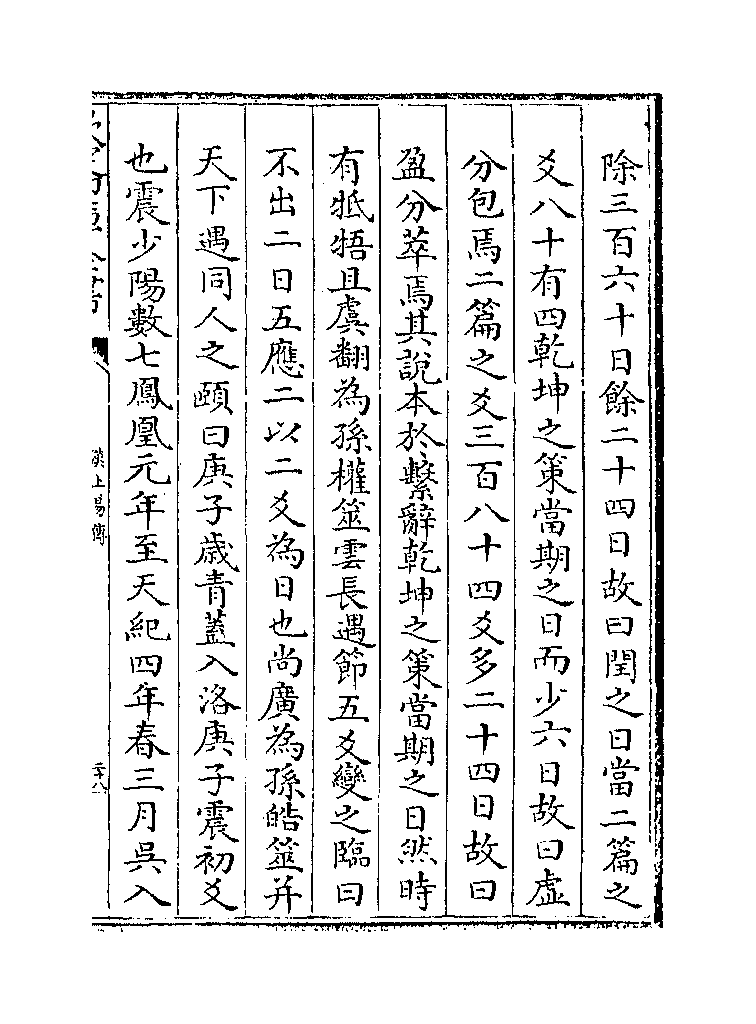 除三百六十日餘二十四日故曰閏之日當二篇之
爻八十有四乾坤之策當期之日而少六日故曰虛
分包焉二篇之爻三百八十四爻多二十四日故曰
盈分萃焉其說本於繫辭乾坤之策當期之日然時
有牴牾且虞翻為孫權筮雲長遇節五爻變之臨曰
不出二日五應二以二爻為日也尚廣為孫皓筮并
天下遇同人之頤曰庚子歲青蓋入洛庚子震初爻
也震少陽數七鳳凰元年至天紀四年春三月吳入
漢上易傳
二十八